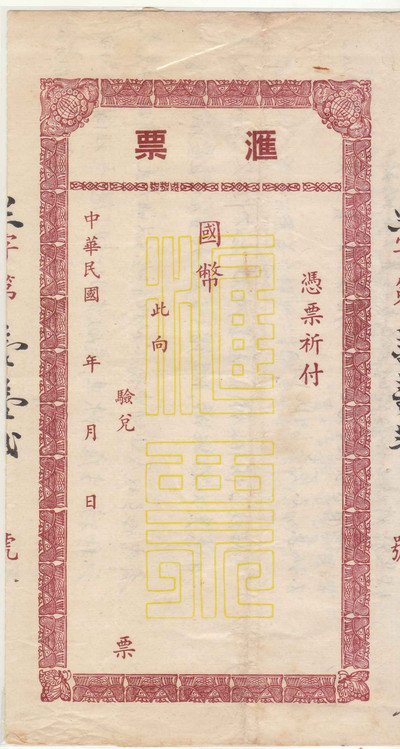 滙票
憑票祈付
國幣
此向
驗兌
票
中華民國 年 月 日
滙票
字第
號
字第
號